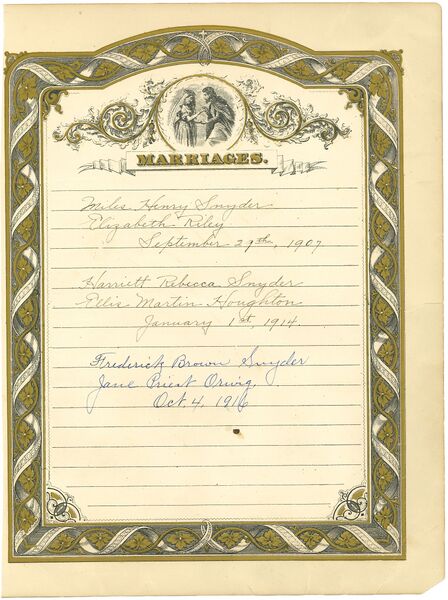 MARRIAGES.
Miles Henry Snyder
Elizabeth Riley
September 29th, 1907
Harriett Rebecca Snyder
Ellis Martin Houghton
January 1st, 1914.
Frederick Brown Snyder
Jane Priest Orwig,
Oct. 4, 1916